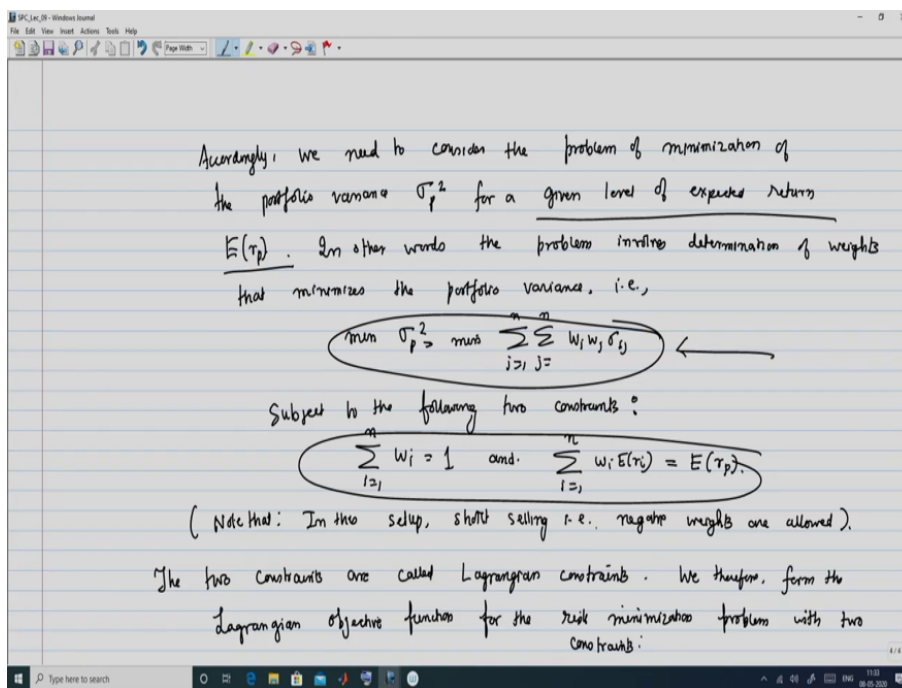 SPC_Lec_09 - Windows Journal
File Edit View Insert Actions Tools Help
Page Width
Accordingly, we need to consider the problem of minimization of
the portfolio variance σ_p^2 for a given level of expected return
E(r_p). In other words the problem involves determination of weights
that minimizes the portfolio variance, i.e.,
min σ_p^2 = min Σ_{i=1}^{n} Σ_{j=}^{n} w_i w_j σ_ij
Subject to the following two constraints:
Σ_{i=1}^{n} w_i = 1 and. Σ_{i=1}^{n} w_i E(r_i) = E(r_p).
(Note that: In this setup, short selling i.e. negative weights are allowed).
The two constraints are called Lagrangian constraints. We therefore, form the
Lagrangian objective function for the risk minimization problem with two
constraints:
6/6
Type here to search
ENG
11:03
08-05-2020